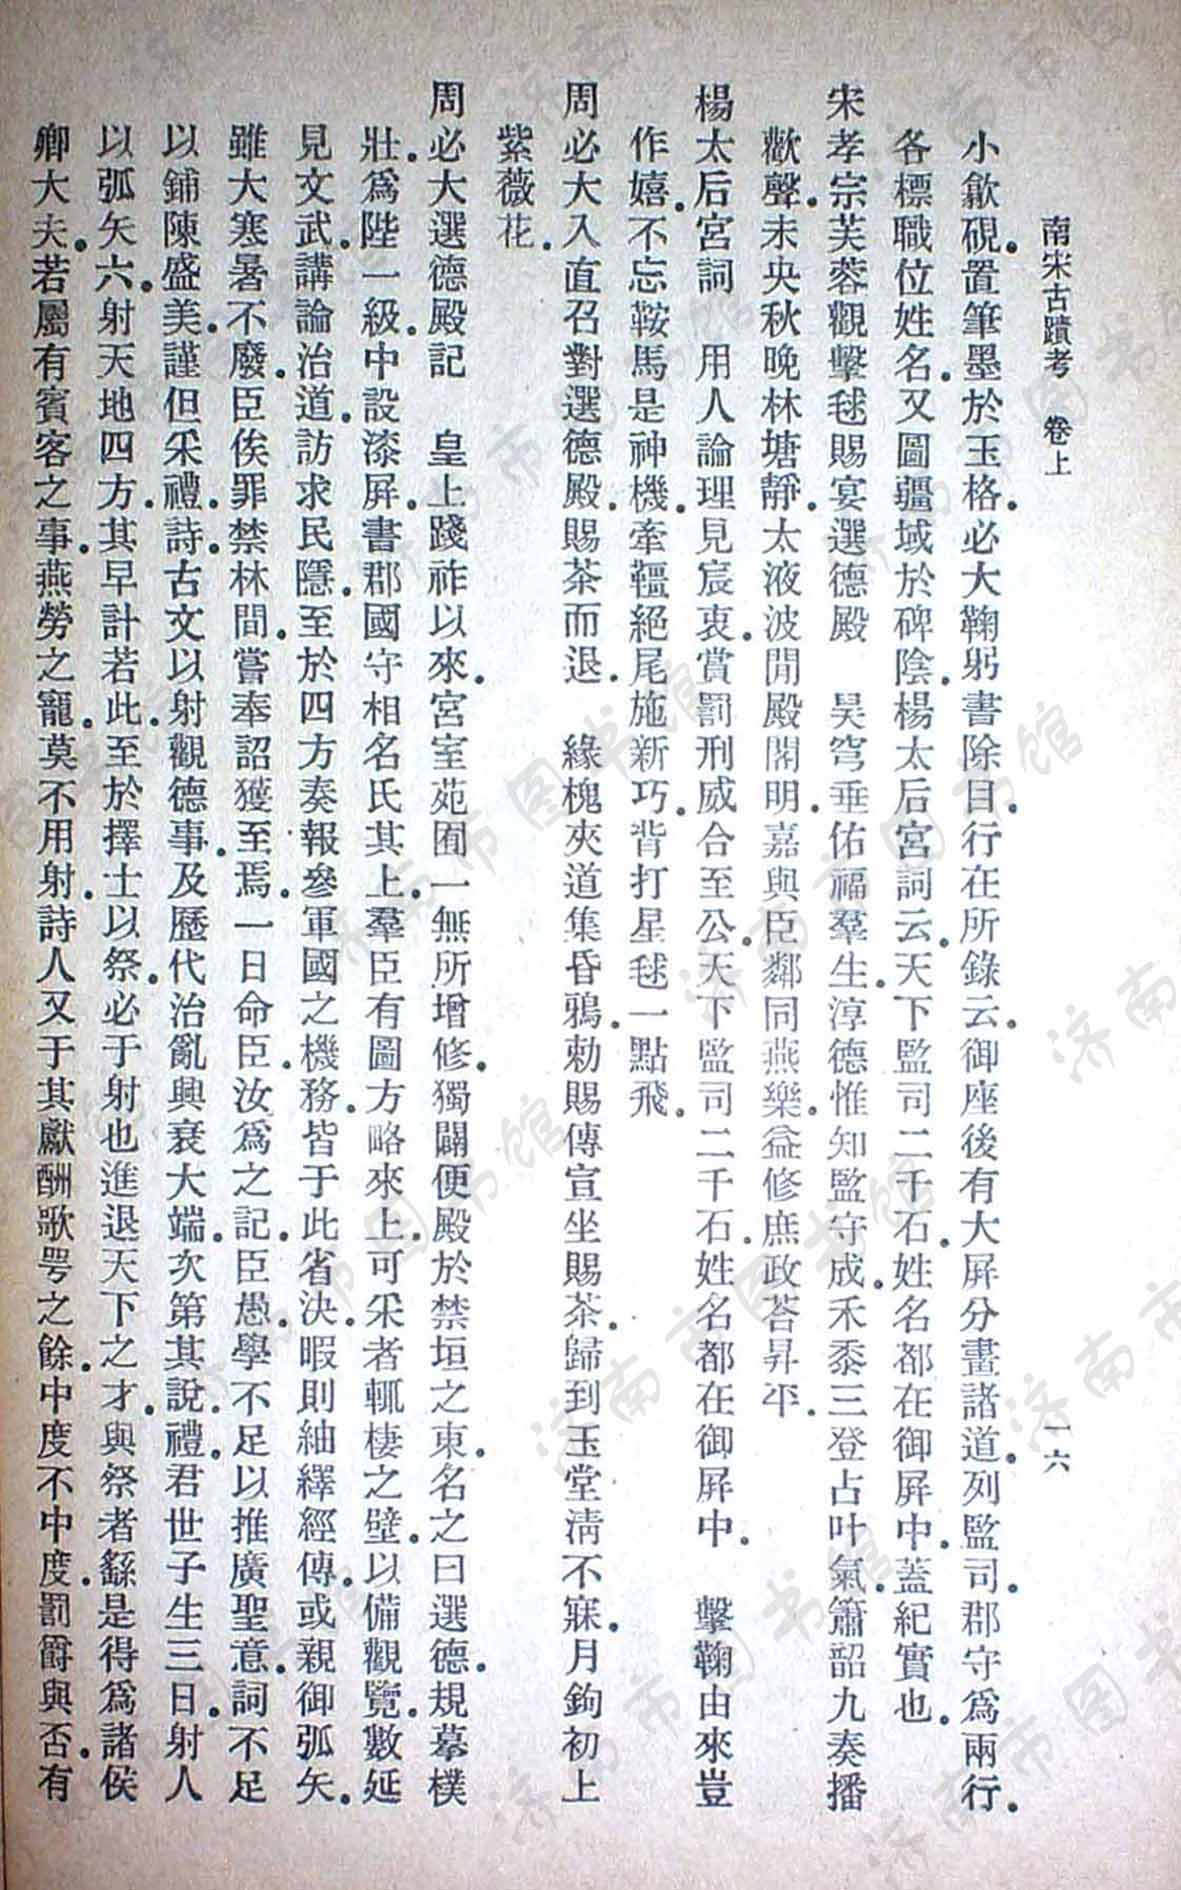 南宋古蹟考　卷上　一六
小歙硯。置筆墨於玉格。必大鞠躬書除目。行在所錄云。御座後有大屏分畫諸道。列監司。郡守爲兩行。
各標職位姓名。又圖疆域於碑陰。楊太后宮詞云。天下監司二千石。姓名都在御屏中。蓋紀實也。
宋孝宗芙蓉觀擊毬賜宴選德殿　昊穹垂佑福羣生。淳德惟知監守成。禾黍三登占叶氣。簫韶九奏播
歡聲。未央秋晚林塘靜。太液波閒殿閣明。嘉與臣鄰同燕樂。益修庶政荅昇平。
楊太后宮詞　用人論理見宸衷。賞罰刑威合至公。天下監司二千石。姓名都在御屏中。　擊鞠由來豈
作嬉。不忘鞍馬是神機。牽韁絕尾施新巧。背打星毬一點飛。
周必大入直召對選德殿。賜茶而退。　綠槐夾道集昏鴉。勅賜傳宣坐賜茶。歸到玉堂淸不寐。月鉤初上
紫薇花。
周必大選德殿記　皇上踐祚以來。宮室苑囿一無所增修。獨闢便殿於禁垣之東。名之曰選德。規摹樸
壯。爲陛一級。中設漆屏。書郡國守相名氏其上。羣臣有圖方略來上。可采者輒棲之壁。以備觀覽。數延
見文武。講論治道。訪求民隱。至於四方奏報參軍國之機務。皆于此省決。暇則紬繹經傳。或親御弧矢。
雖大寒暑不廢。臣俟罪禁林間。嘗奉詔獲至焉。一日命臣。汝爲之記。臣愚。學不足以推廣聖意。詞不足
以鋪陳盛美。謹但采禮。詩。古文以射觀德事。及歷代治亂興衰大端。次第其說。禮。君世子生三日。射人
以弧矢六。射天地四方。其早計若此。至於擇士以祭。必于射也進退天下之才。與祭者繇是得爲諸侯
卿大夫。若屬有賓客之事。燕勞之寵。莫不用射。詩人又于其獻酬歌咢之餘。中度不中度。罰爵與否。有